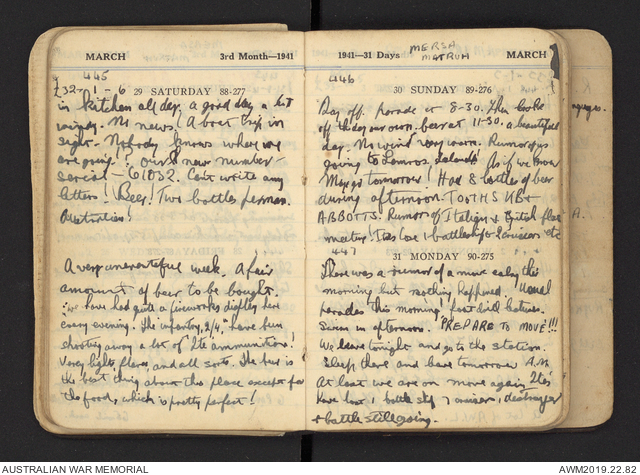 MARCH 3rd Month—1941
445
£32-1-6 29 SATURDAY 88-277
in kitchen all day, a good day, a bit
windy. No news. A boat trip in
sight. Nobody knows where we
are going? our new number
serial - 61032. Can't write any
letters! Beer! Two bottles per man.
Australian!
A very uneventful week. A fair
amount of beer to be bought.
We have had quite a fireworks display here
every evening. The infantry, 2/4, have been
shooting away a lot of Ite ammunition!
Very lights, flares, and all sorts. The beer is
the best thing about this place except for
the food, which is pretty perfect!
1941—31 Days MERSA MATRUH MARCH
446
30 SUNDAY 89-276
Day off. parade at 8-30. Then
off the day our own. beer at 11-30. a beautiful
day. No wind very warm. Rumor of us
going to Lemnos Island! As if we know
Maygo tomorrow! Had 8 bottles of beer
during afternoon. TOOTHS KB+
ABBOTTS. Rumor of Italian & British fleet
meeting! Ites lose 1 battleship 2 cruisers etc
447
31 MONDAY 90-275
There was a rumor of a move early this
morning but nothing happened. usual
parades this morning.
Swim in afternoon. 'PREPARE TO MOVE'!!!
We leave tonight and go to the station.
Sleep there and leave tomorrow A.M.
At last we are on move again. Ites
have lost 1 battle ship 7 cruisers, destroyer
+ battle still going.
A.
AUSTRALIAN WAR MEMORIAL
AWM2019.22.82